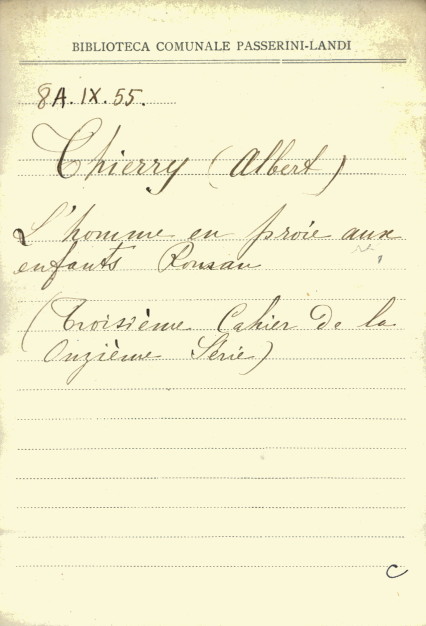 BIBLIOTECA COMUNALE PASSERINI-LANDI
8A. IX. 55.
Thierry (Albert)
L'homme en proie aux
enfants Ronsan
(Troisième Cahier de la
Onzième Série)
C